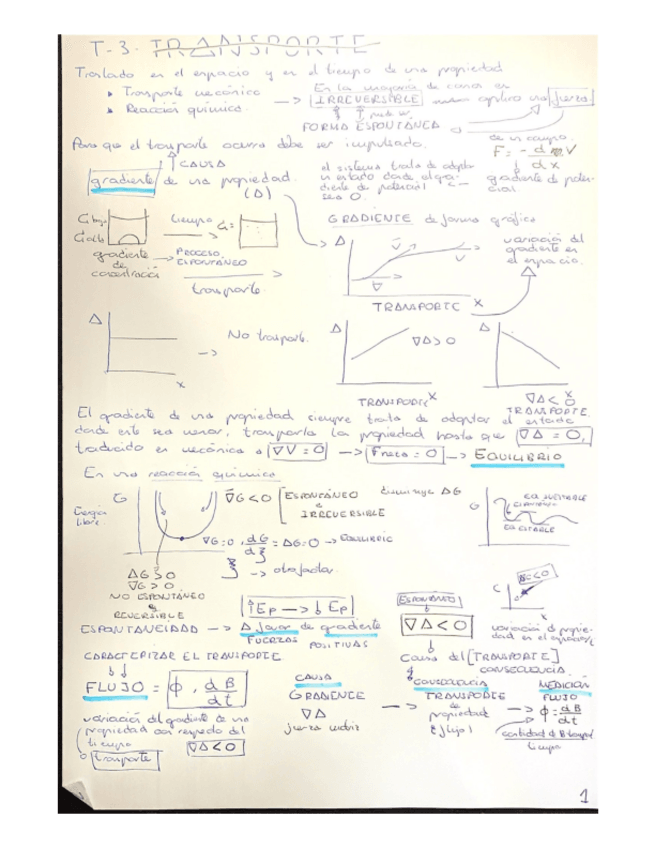 T-3. TRANSPORTE
Traslado en el espacio y en el tiempo de una propiedad
▸ Transporte mecánico
En la mayoría de casos es
▸ Reacción química.
→ IRREVERSIBLE
una fuerza
FORMA ESPONTÁNEA
de un campo.
Para que el transporte ocurra debe ser impulsado.
F = - d V
dx
↑ CAUSA
gradiente de una propiedad.
(Δ)
el sistema trata de adoptar
un estado donde el gra-
diente de potencial
sea 0.
gradiente de poten-
cial
GRADIENTE de forma gráfica
C bajo
C alto
tiempo
gradiente
de
concentración
→ PROCESO
ESPONTÁNEO
transporte.
Δ
variación del
gradiente en
el espacio.
TRANSPORTE x
Δ
x
→ No transporte.
Δ
∇Δ > 0
TRANSPORTE x
Δ
x
∇Δ < 0
TRANSPORTE.
El gradiente de una propiedad siempre trata de adoptar el estado
donde este sea menor, transporta la propiedad hasta que ∇Δ = 0,
traducido en mecánica a ∇V = 0 → Fneta = 0 → EQUILIBRIO
En una reacción química
G
Energía
libre.
∇G < 0
ESPONTÁNEO
e
IRREVERSIBLE
disminuye ΔG
∇G = 0, dG/dξ = ΔG = 0 → EQUILIBRIO
ξ → 
G
ΔG > 0
∇G > 0
NO ESPONTÁNEO
REVERSIBLE
C
x
↑Ep → ↓Ep
ESPONTÁNEO
∇Δ < 0
variación de propie-
dad en el espacio
ESPONTANEIDAD → A favor de gradiente
FUERZAS POSITIVAS
CARACTERIZAR EL TRANSPORTE
Causa del [TRANSPORTE]
CONSECUENCIA.
FLUJO = ϕ, dB/dt
CAUSA
GRADIENTE
∇Δ
fuerza motriz
→
CONSECUENCIA
TRANSPORTE
de
propiedad
(flujo)
→
MEDICIÓN
FLUJO
ϕ = dB/dt
cantidad de B
tiempo
variación del gradiente de una
propiedad con respecto del
tiempo
∇Δ < 0
transporte
1